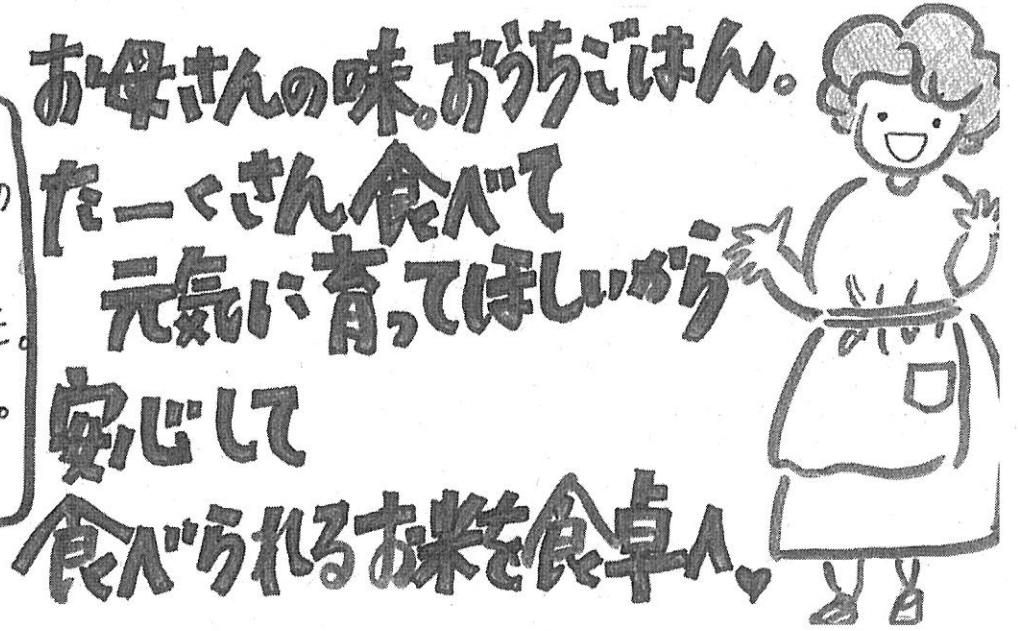 お母さんの味。おうちごはん。
たーくさん食べて
元気に育ってほしいから
安心して
食べられるお米を食卓へ♥